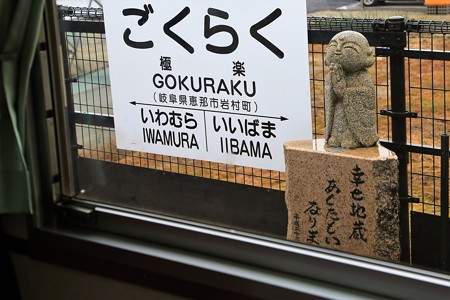 ごくらく
極楽
GOKURAKU
(岐阜県恵那市岩村町)
いわむら
IWAMURA
いいばま
IIBAMA
幸せ地蔵